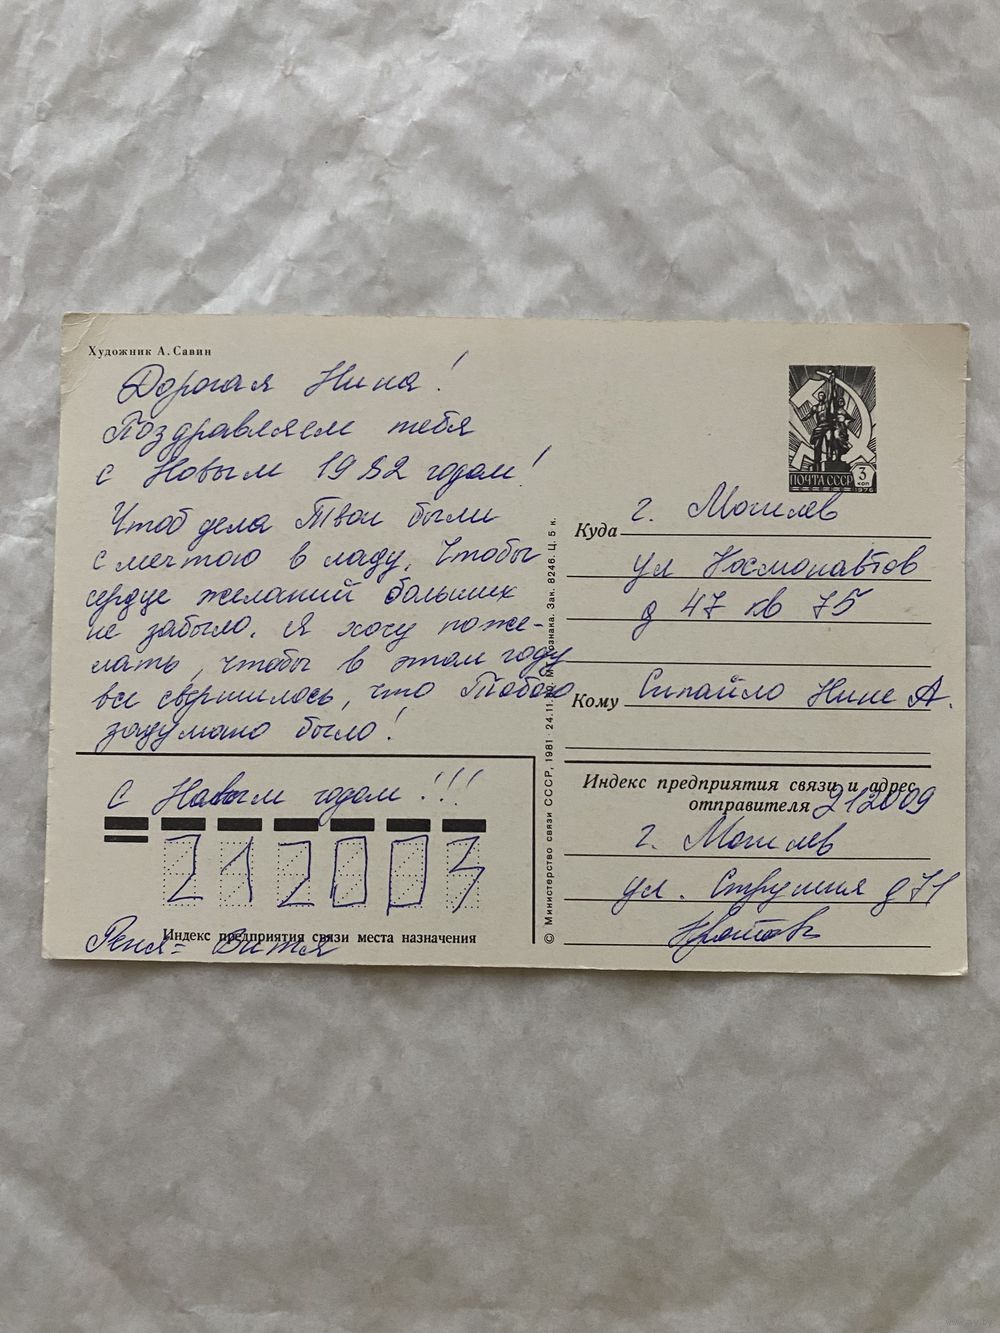 Художник А. Савин
Дорогая Нина!
Поздравляем тебя
с Новым 1982 годом!
Чтоб дела Твои были
с мечтою в ладу, Чтобы
сердце желаний больших
не забыло. Я хочу поже-
лать, чтобы в этом году
все свершилось, что Тобою
задумано было!
С Новым годом!!!
212003
Индекс предприятия связи места назначения
Реня - Витя
© Министерство связи СССР, 1981 · 24.11. Зак. 8246. Ц. 5 к.
ПОЧТА СССР
3 коп
1976
Куда г. Могилев
ул Космонавтов
д 47 кв 75
Кому Сипайло Нине А.
Индекс предприятия связи и адрес
отправителя 212009
г. Могилев
ул. д 71